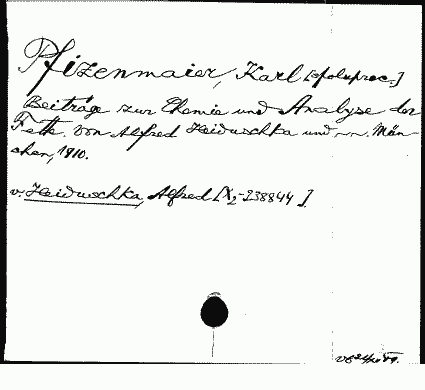 Pfizenmaier, Karl [spoluprac.]
Beiträge zur Chemie und Analyse der
Fette. Von Alfred Heiduschka und —.—. Mün-
chen, 1910.
v. Heiduschka, Alfred [X2-238844].